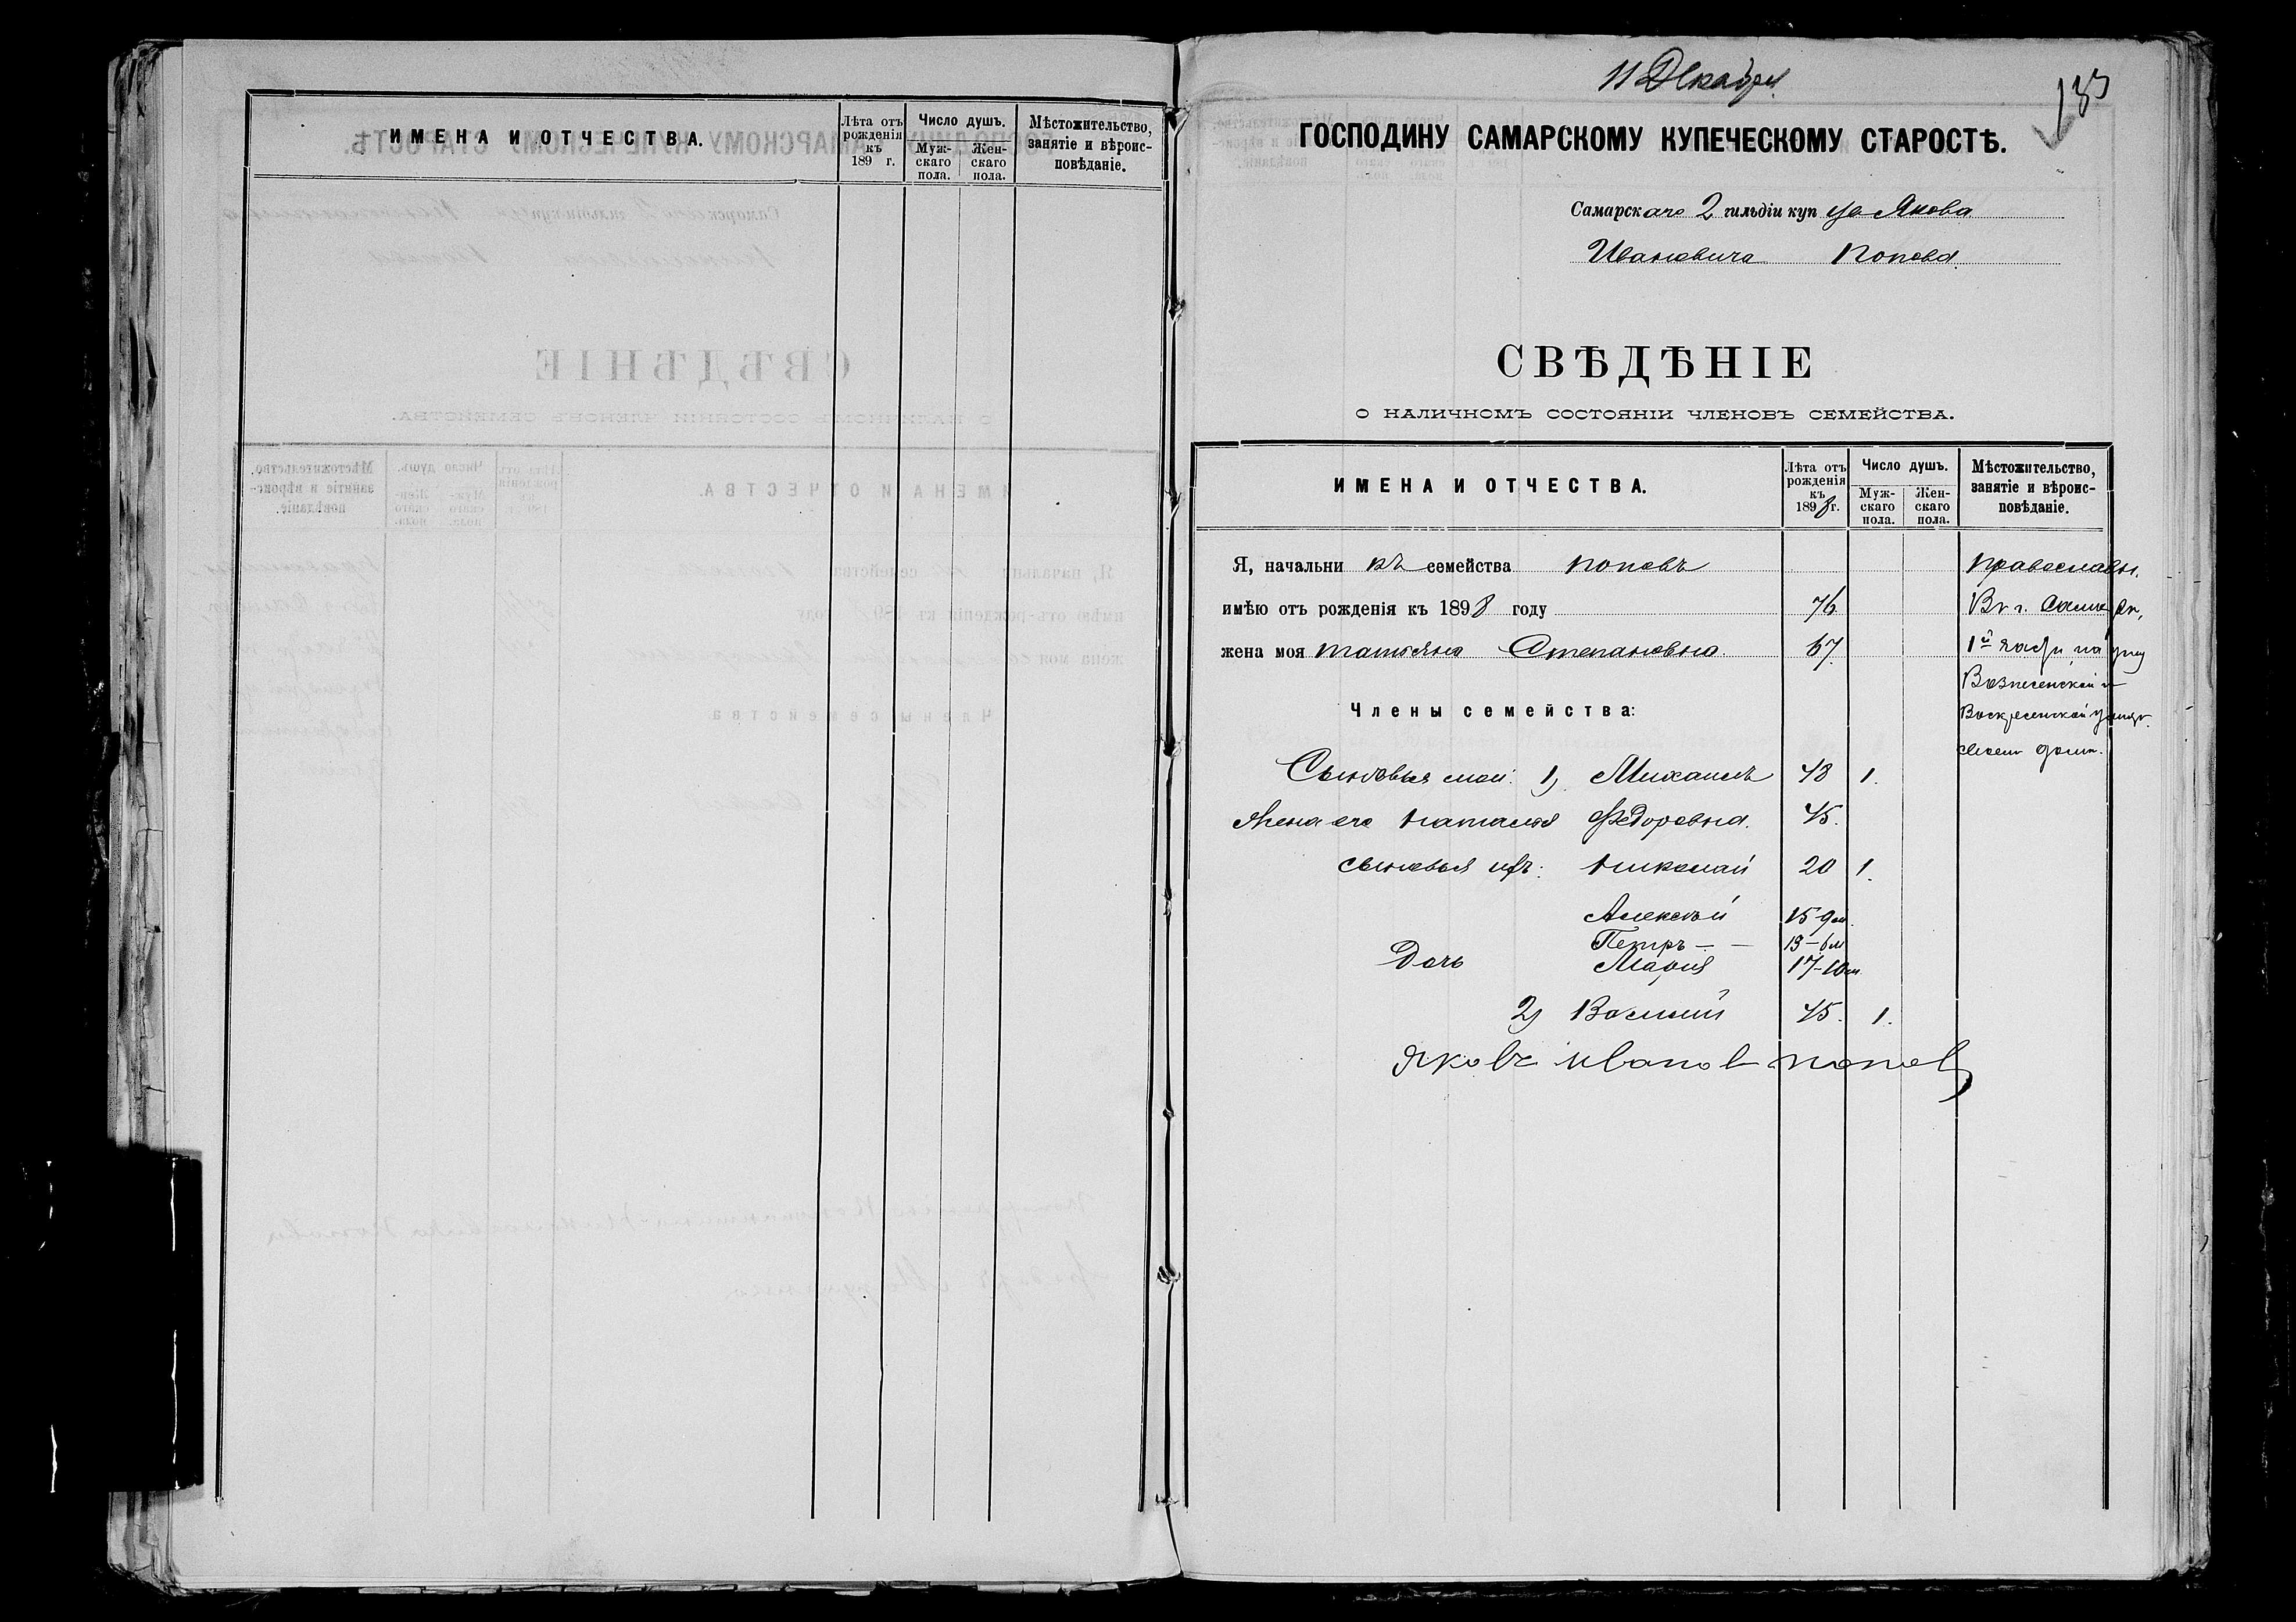 ИМЕНА И ОТЧЕСТВА.
Лѣта отъ рожденія къ 189 г.
Число душъ.
Мужскаго пола.
Женскаго пола.
Мѣстожительство, занятіе и вѣроисповѣданіе.
11 Декабря
ГОСПОДИНУ САМАРСКОМУ КУПЕЧЕСКОМУ СТАРОСТѢ.
Самарскаго 2 гильдіи купца Якова
Ивановича Попова
СВѢДѢНІЕ
О НАЛИЧНОМЪ СОСТОЯНІИ ЧЛЕНОВЪ СЕМЕЙСТВА.
ИМЕНА И ОТЧЕСТВА.
Лѣта отъ рожденія къ 1898 г.
Число душъ.
Мужскаго пола.
Женскаго пола.
Мѣстожительство, занятіе и вѣроисповѣданіе.
Я, начальникъ семейства Поповъ Православн.
имѣю отъ рожденія къ 1898 году 76 Въ г. Самарѣ,
жена моя Татьяна Степановна 67 1й части, на углу
Вознесенской и
Члены семейства: Воскресенской улицъ
своемъ домѣ.
Сыновья мои: 1) Михаилъ 48 1.
Жена его Наталья Федоровна. 45.
сыновья ихъ: Николай 20 1.
Алексѣй 15-9м.
Петръ — — 13-6м
Дочь Марія 17-10м.
2) Василій 45. 1.
Яковъ Иванов Попов